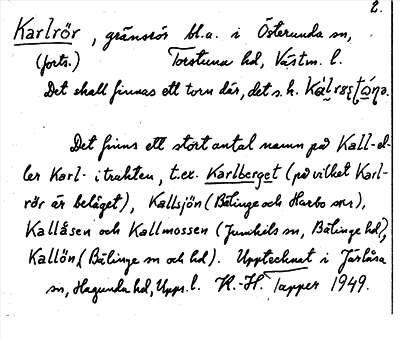 2.
Karlrör, gränsrör bl.a. i Österunda sn,
(forts.) Torstuna hd, Västm. l.
Det skall finnas ett torn där, det s.k.
Det finns ett stort antal namn på Kall- el-
ler Karl- i trakten, t.ex. Karlberget (på vilket Karl-
rör är beläget), Kallsjön (Bälinge och Harbo snr),
Kallåsen och Kallmossen (Jumkils sn, Bälinge hd),
Kallön (Bälinge sn och hd). Upptecknat i Järlåsa
sn, Hagunda hd, Upps. l. K.-H. Tapper 1949.